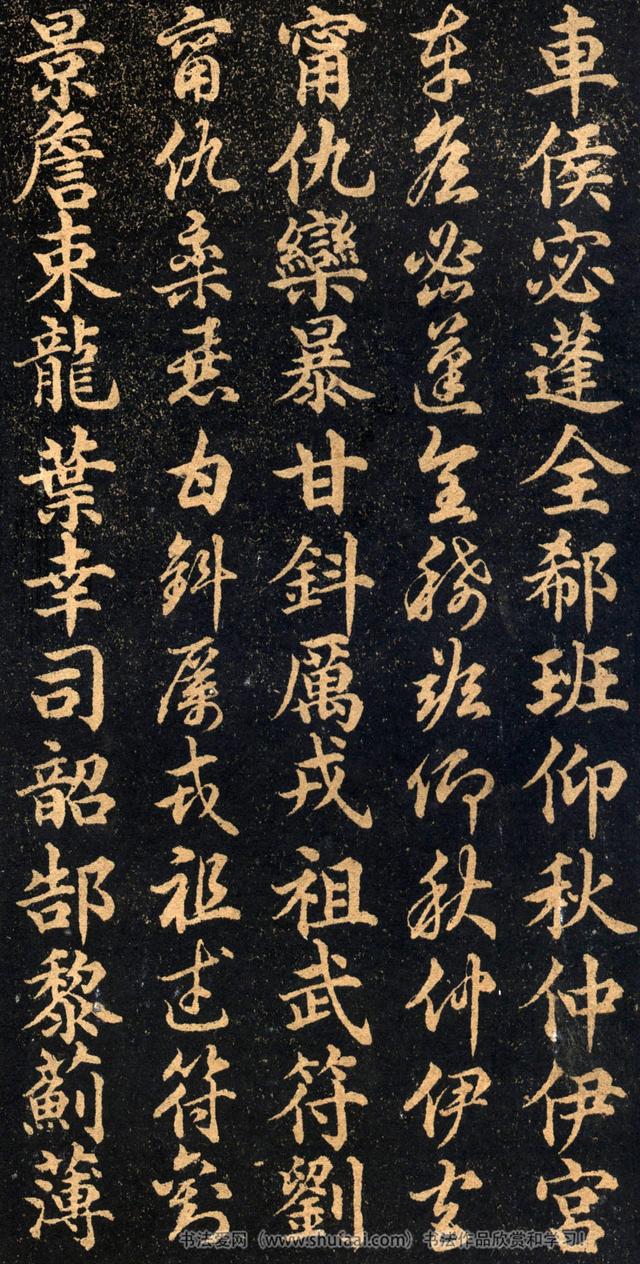 車侯宓蓬全郗班仰秋仲伊宮
車侯宓蓬全郗班仰秋仲伊宮
甯仇欒暴甘鈄厲戎祖武符劉
甯仇欒暴甘鈄厲戎祖武符劉
景詹束龍葉幸司韶郜黎薊薄
书法爱网（www.shufaai.com）书法作品欣赏和学习！